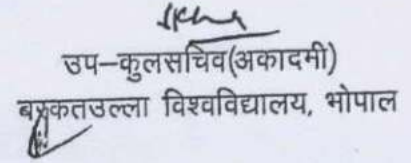 उप–कुलसचिव(अकादमी)
बरकतउल्ला विश्वविद्यालय, भोपाल